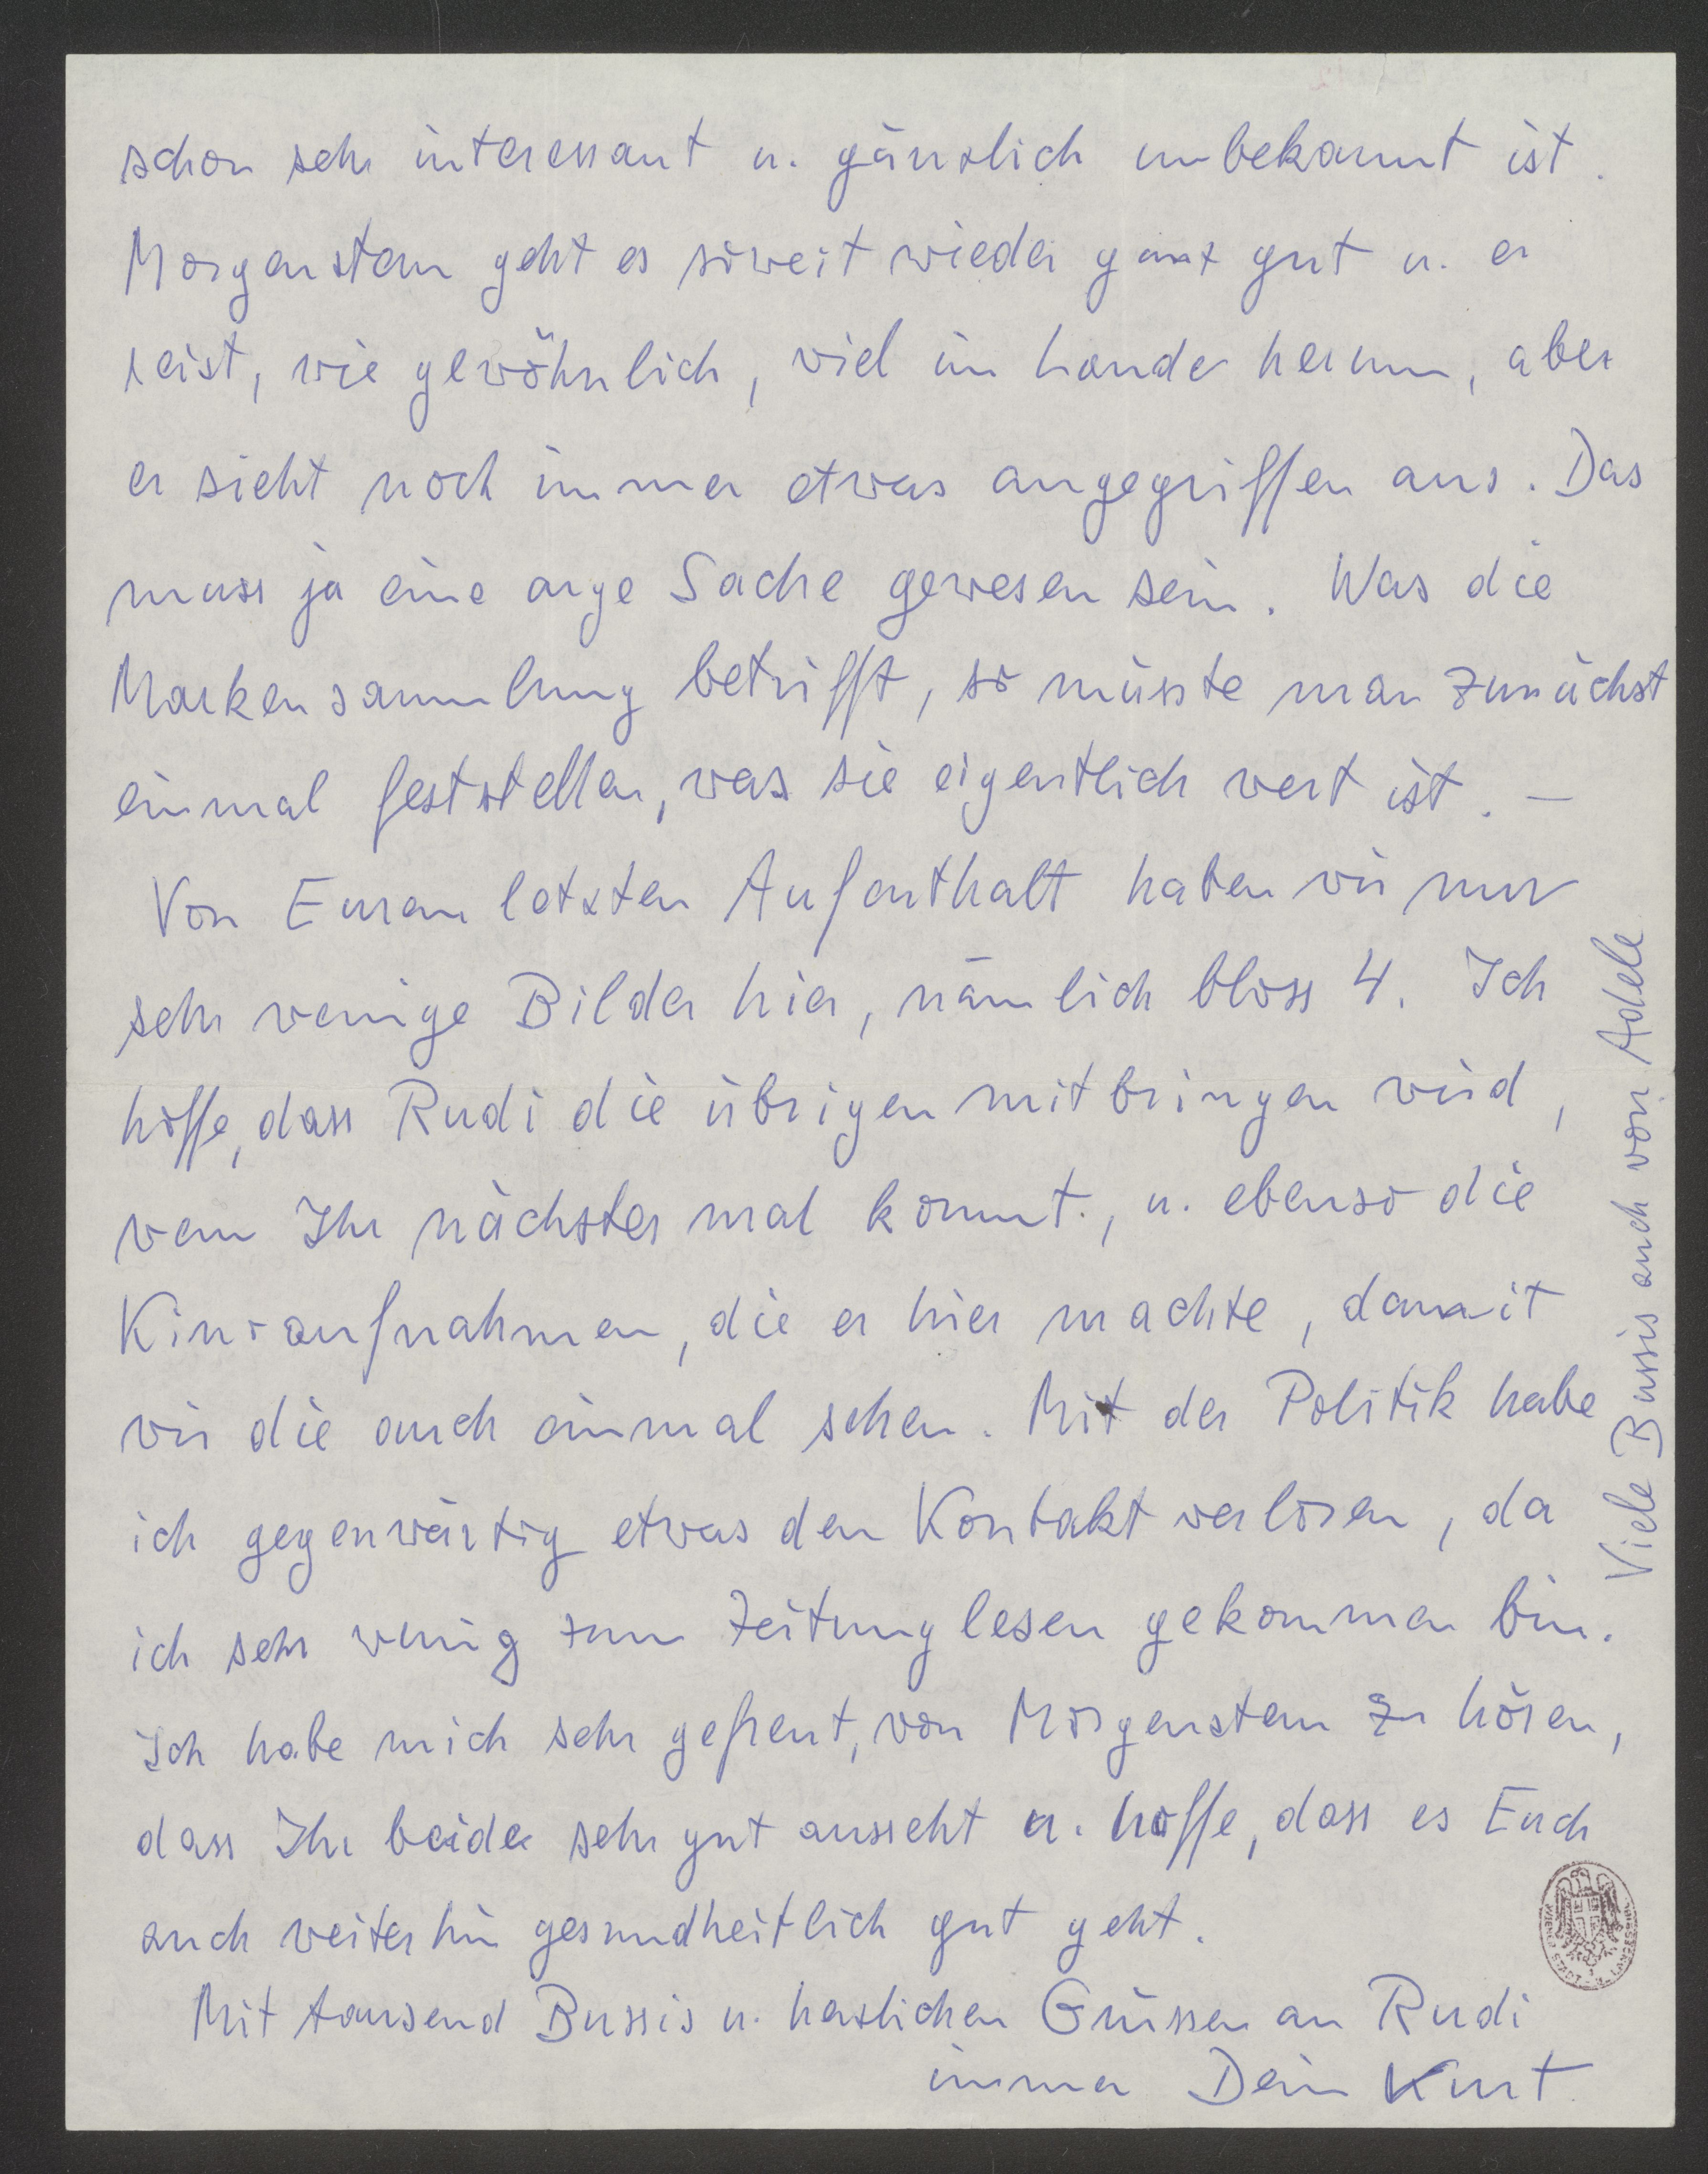 schon sehr interessant u. gänzlich unbekannt ist.
Morgenstern geht es soweit wieder ganz gut u. er
reist, wie gewöhnlich, viel im Lande herum, aber
er sieht noch immer etwas angegriffen aus. Das
muss ja eine arge Sache gewesen sein. Was die
Markensammlung betrifft, so müsste man zunächst
einmal feststellen, was sie eigentlich wert ist. –
Von Eurem letzten Aufenthalt haben wir nur
sehr wenige Bilder hier, nämlich bloss 4. Ich
hoffe, dass Rudi die übrigen mitbringen wird,
wenn Ihr nächstes mal kommt., u. ebenso die
Kinoaufnahmen, die er hier machte, damit
wir die auch einmal sehen. Mit der Politik habe
ich gegenwärtig etwas den Kontakt verloren, da
ich sehr wenig zum Zeitunglesen gekommen bin.
Ich habe mich sehr gefreut, von Morgenstern zu hören,
dass Ihr beide sehr gut ausseht u. hoffe, dass es Euch
auch weiterhin gesundheitlich gut geht.
Mit tausend Bussis u. herzlichen Grüssen an Rudi
immer Dein Kurt
Viele Bussis auch von Adele
WIENER STADT- U. LANDESBIBL.